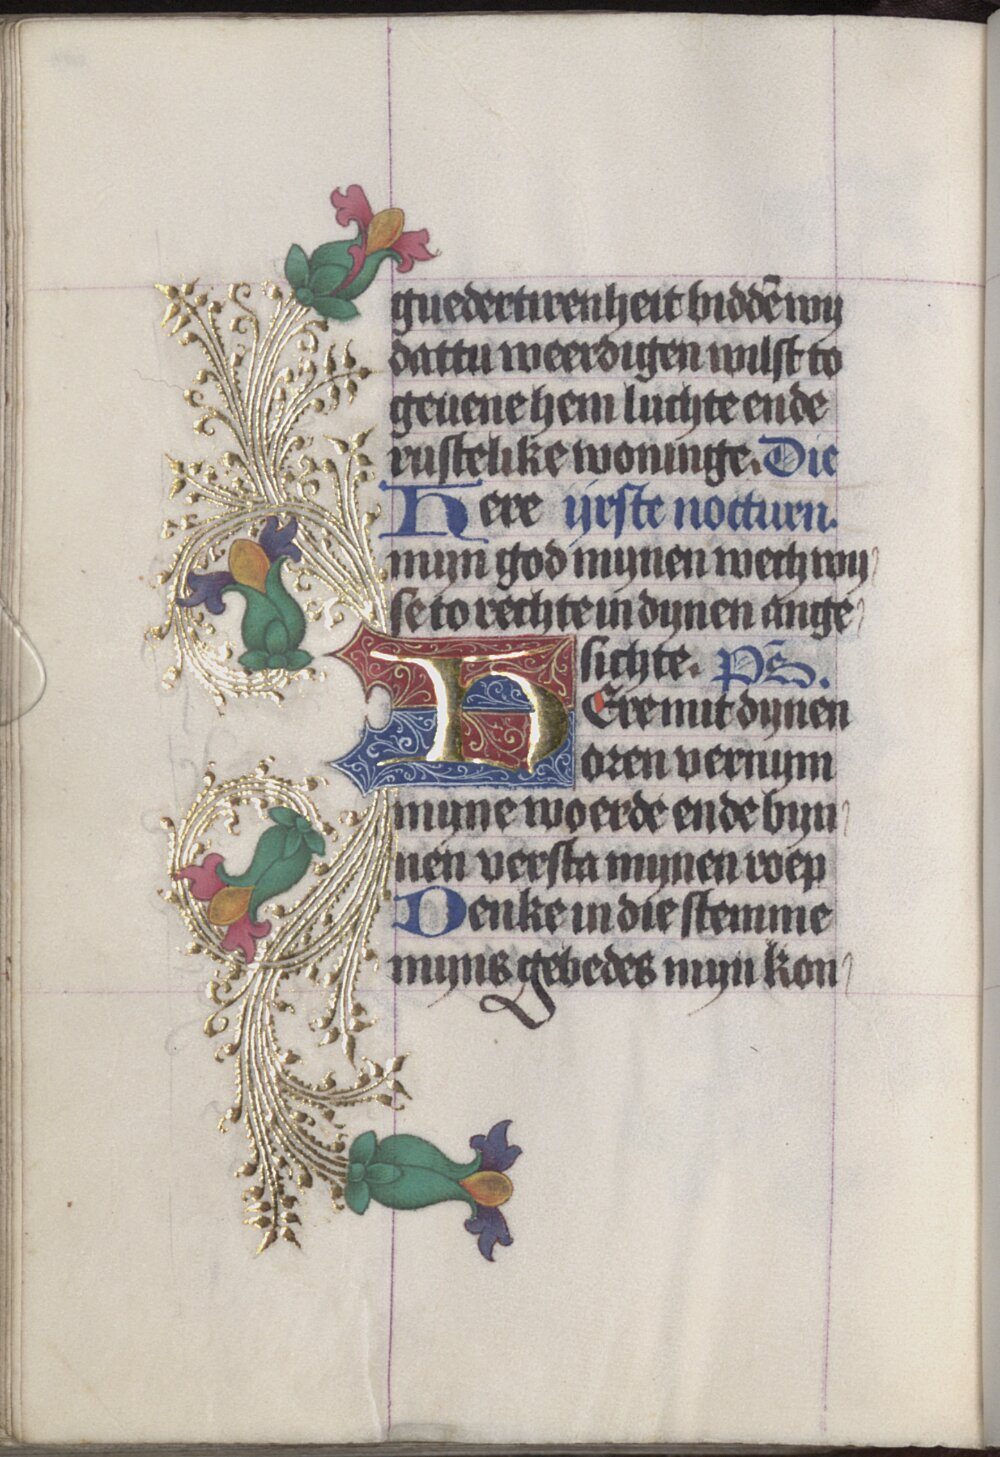 guedertirenheit biddē wy
dattu weerdigen wilst to
geuene hem luchte ende
rustelike woninge. Die
Here yrste nocturn.
myn god mynen wech wy
se to rechte in dynen ange
sichte. ps.
HEre mit dynen
oren vernym
myne woerde ende byn
nen versta mynen roep
Denke in die stemme
myns gebedes myn kon